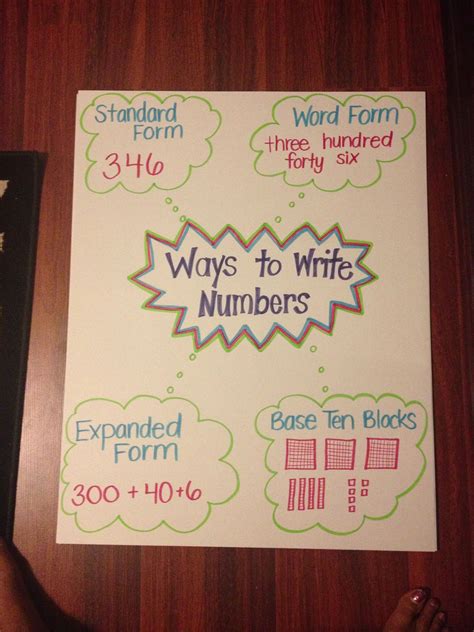 Standard
Form
346
Word Form
three hundred
forty six
Ways to Write
Numbers
Expanded
Form
300 + 40 + 6
Base Ten Blocks